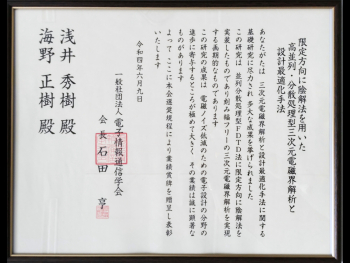 限定方向に陰解法を用いた
高並列・分散処理型三次元電磁界解析と
設計最適化手法
浅井 秀樹 殿
海野 正樹 殿
あなたがたは 三次元電磁界解析と設計最適化手法に関する
基礎研究に尽力され多大な成果を挙げられました
この研究は 並列分散処理型FDTD法に限定方向に陰解法を
実装したものであり刻み幅フリーの三次元電磁界解析を実現
する画期的なものであります
この研究の成果は 電磁ノイズ低減のための電子設計の分野の
進歩に寄与するところが極めて大きく その業績は誠に顕著な
ものがあります
よって ここに本会選奨規程により業績賞牌を贈呈し表彰
いたします
令和四年六月九日
一般社団法人 電子情報通信学会
会長 石田 亨